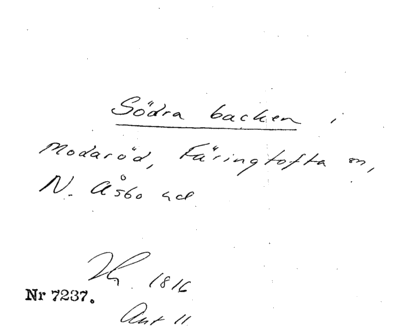 Södra backen i
Modaröd, Färingtofta sn,
N. Åsbo hd
1816
Nr 7237.
Akt 11